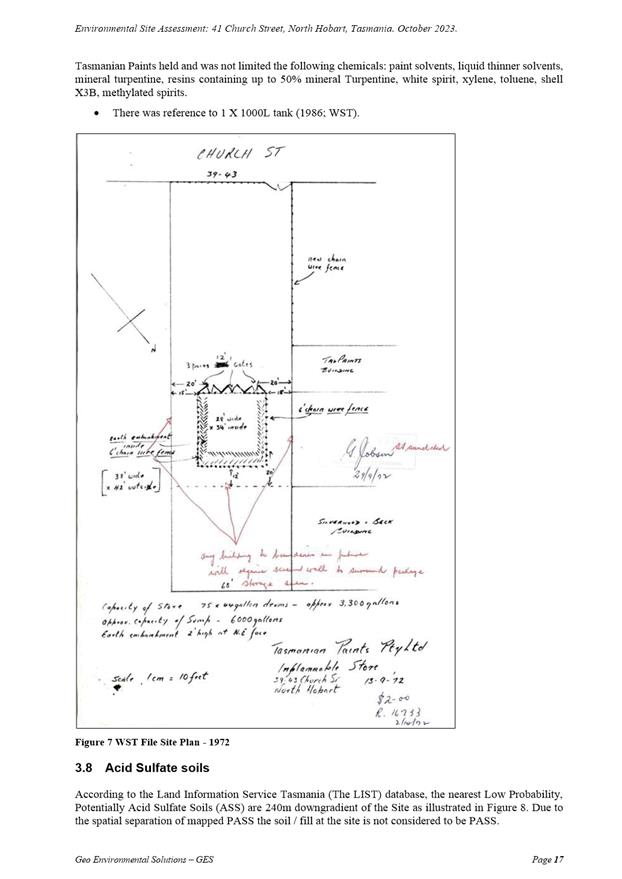 Environmental Site Assessment: 41 Church Street, North Hobart, Tasmania. October 2023.
Tasmanian Paints held and was not limited the following chemicals: paint solvents, liquid thinner solvents,
mineral turpentine, resins containing up to 50% mineral Turpentine, white spirit, xylene, toluene, shell
X3B, methylated spirits.
• There was reference to 1 X 1000L tank (1986; WST).
CHURCH ST
39-43
new chain
wire fence
N
12'
3 pairs gates
TasPaints
Building
20'
20'
15'
18'
6' chain wire fence
28' wide
x 34' inside
Earth embankment
inside
6' chain wire fence
G Jobson
29/9/72
33' wide
x 42' outside
12'
20'
Silverwood + Beck
Building
any building to boundaries in future
will require screen wall to surround package
storage area.
68'
Capacity of Store 75 x 44 gallon drums - approx 3,300 gallons
Approx. capacity of Sump - 6000 gallons
Earth embankment 2' high at N.E face
Tasmanian Paints Pty Ltd
Inflammable Store
Scale 1cm = 10 feet
39-43 Church St
13-9-72
North Hobart
$2-00
R. 16733
2/10/72
Figure 7 WST File Site Plan - 1972
3.8 Acid Sulfate soils
According to the Land Information Service Tasmania (The LIST) database, the nearest Low Probability,
Potentially Acid Sulfate Soils (ASS) are 240m downgradient of the Site as illustrated in Figure 8. Due to
the spatial separation of mapped PASS the soil / fill at the site is not considered to be PASS.
Geo Environmental Solutions – GES
Page 17